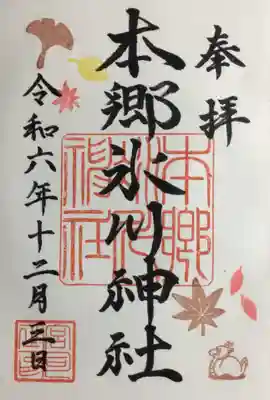 奉拝
本郷氷川神社
令和六年十二月三日
本郷氷川神社